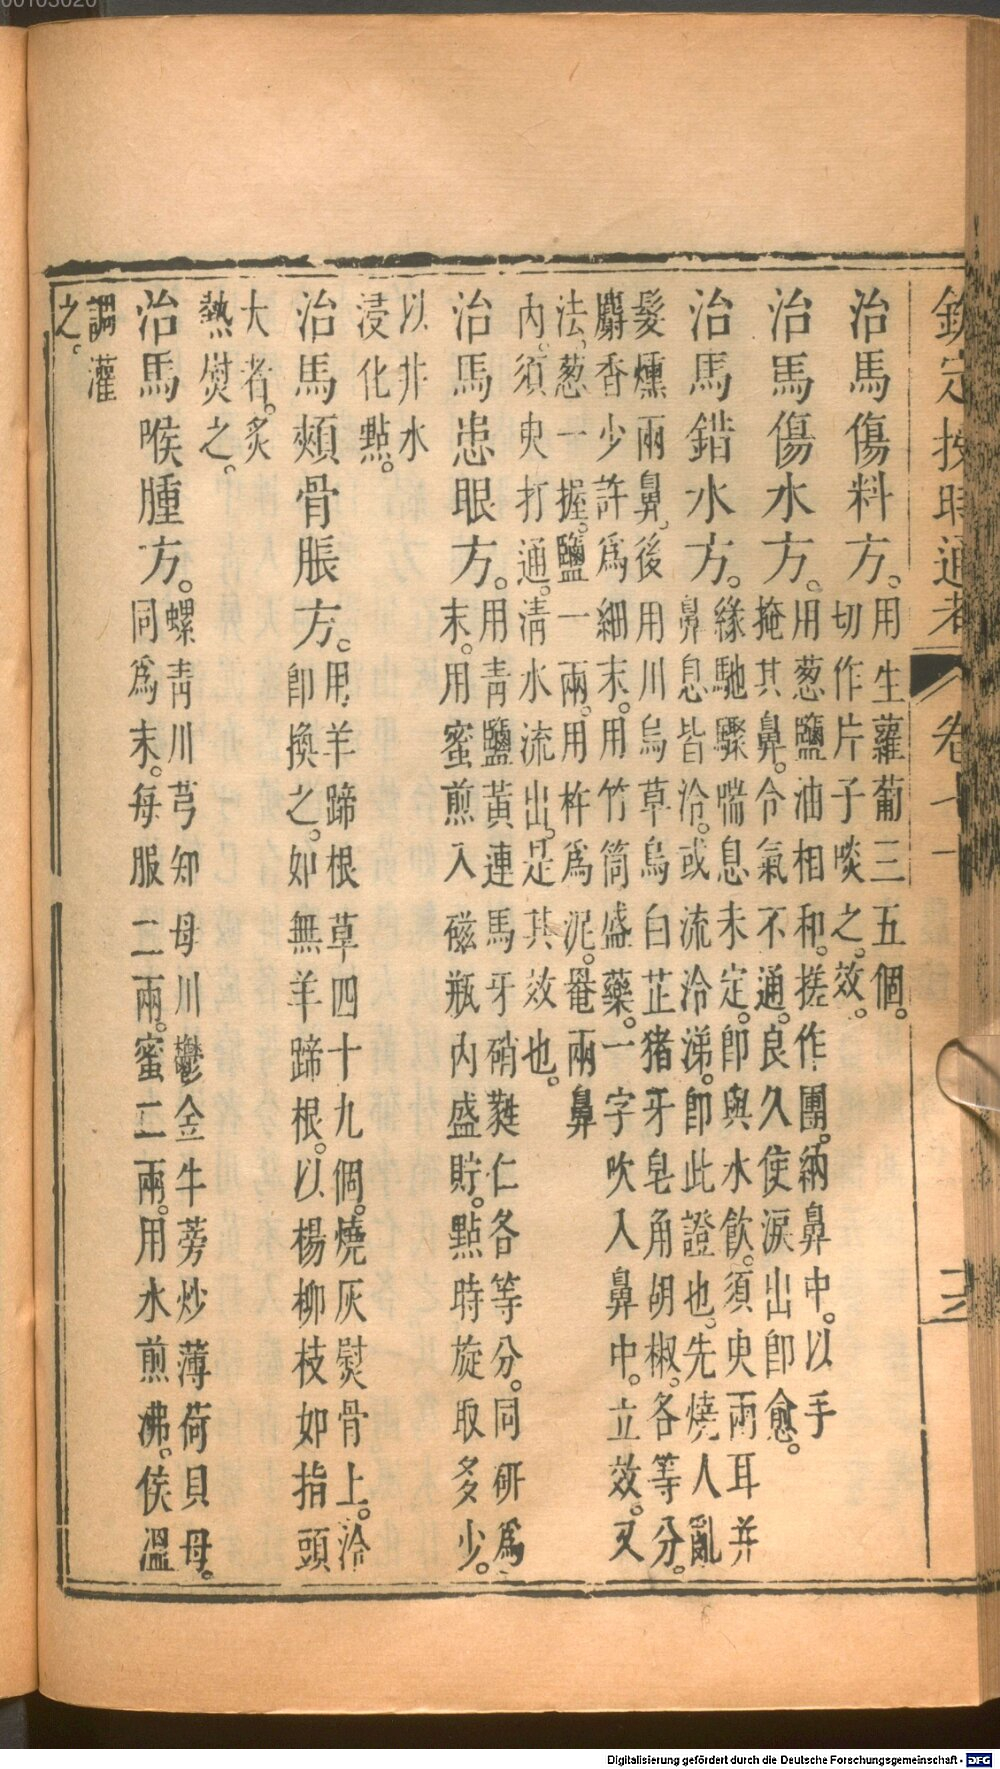 欽定授時通考 卷
治馬傷料方。用生蘿蔔三五個。
切作片子啖之。效。
治馬傷水方。用葱鹽油相和。搓作團。納鼻中。以手
掩其鼻。令氣不通。良久使淚出卽愈。
治馬錯水方。緣馳驟喘息未定。卽與水飲。須臾兩耳并
鼻息皆冷。或流冷涕。卽此證也。先燒人亂
髮燻兩鼻。後用川烏草烏白芷猪牙皂角胡椒。各等分。
麝香少許爲細末。用竹筒盛藥。一字吹入鼻中。立效。又
法。葱一握。鹽一兩。用杵爲泥。罨兩鼻
內。須臾打通。淸水流出。是其效也。
治馬患眼方。用靑鹽黃連馬牙硝蕤仁各等分。同硏爲
末。用蜜煎入磁瓶內盛貯。點時旋取多少。
以井水
浸化點。
治馬頰骨脹方。用羊蹄根草四十九個。燒灰熨骨上。冷
卽換之。如無羊蹄根。以楊柳枝如指頭
大者。炙
熱熨之。
治馬喉腫方。螺靑川芎知母川鬱金牛蒡炒薄荷貝母。
同爲末。每服二兩。蜜二兩。用水煎沸。候溫
調灌
之。
Digitalisierung gefördert durch die Deutsche Forschungsgemeinschaft - DFG